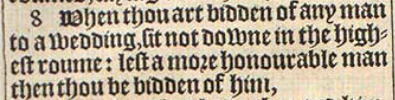 8 When thou art bidden of any man
to a wedding, sit not downe in the high-
est roume: lest a more honourable man
then thou be bidden of him,